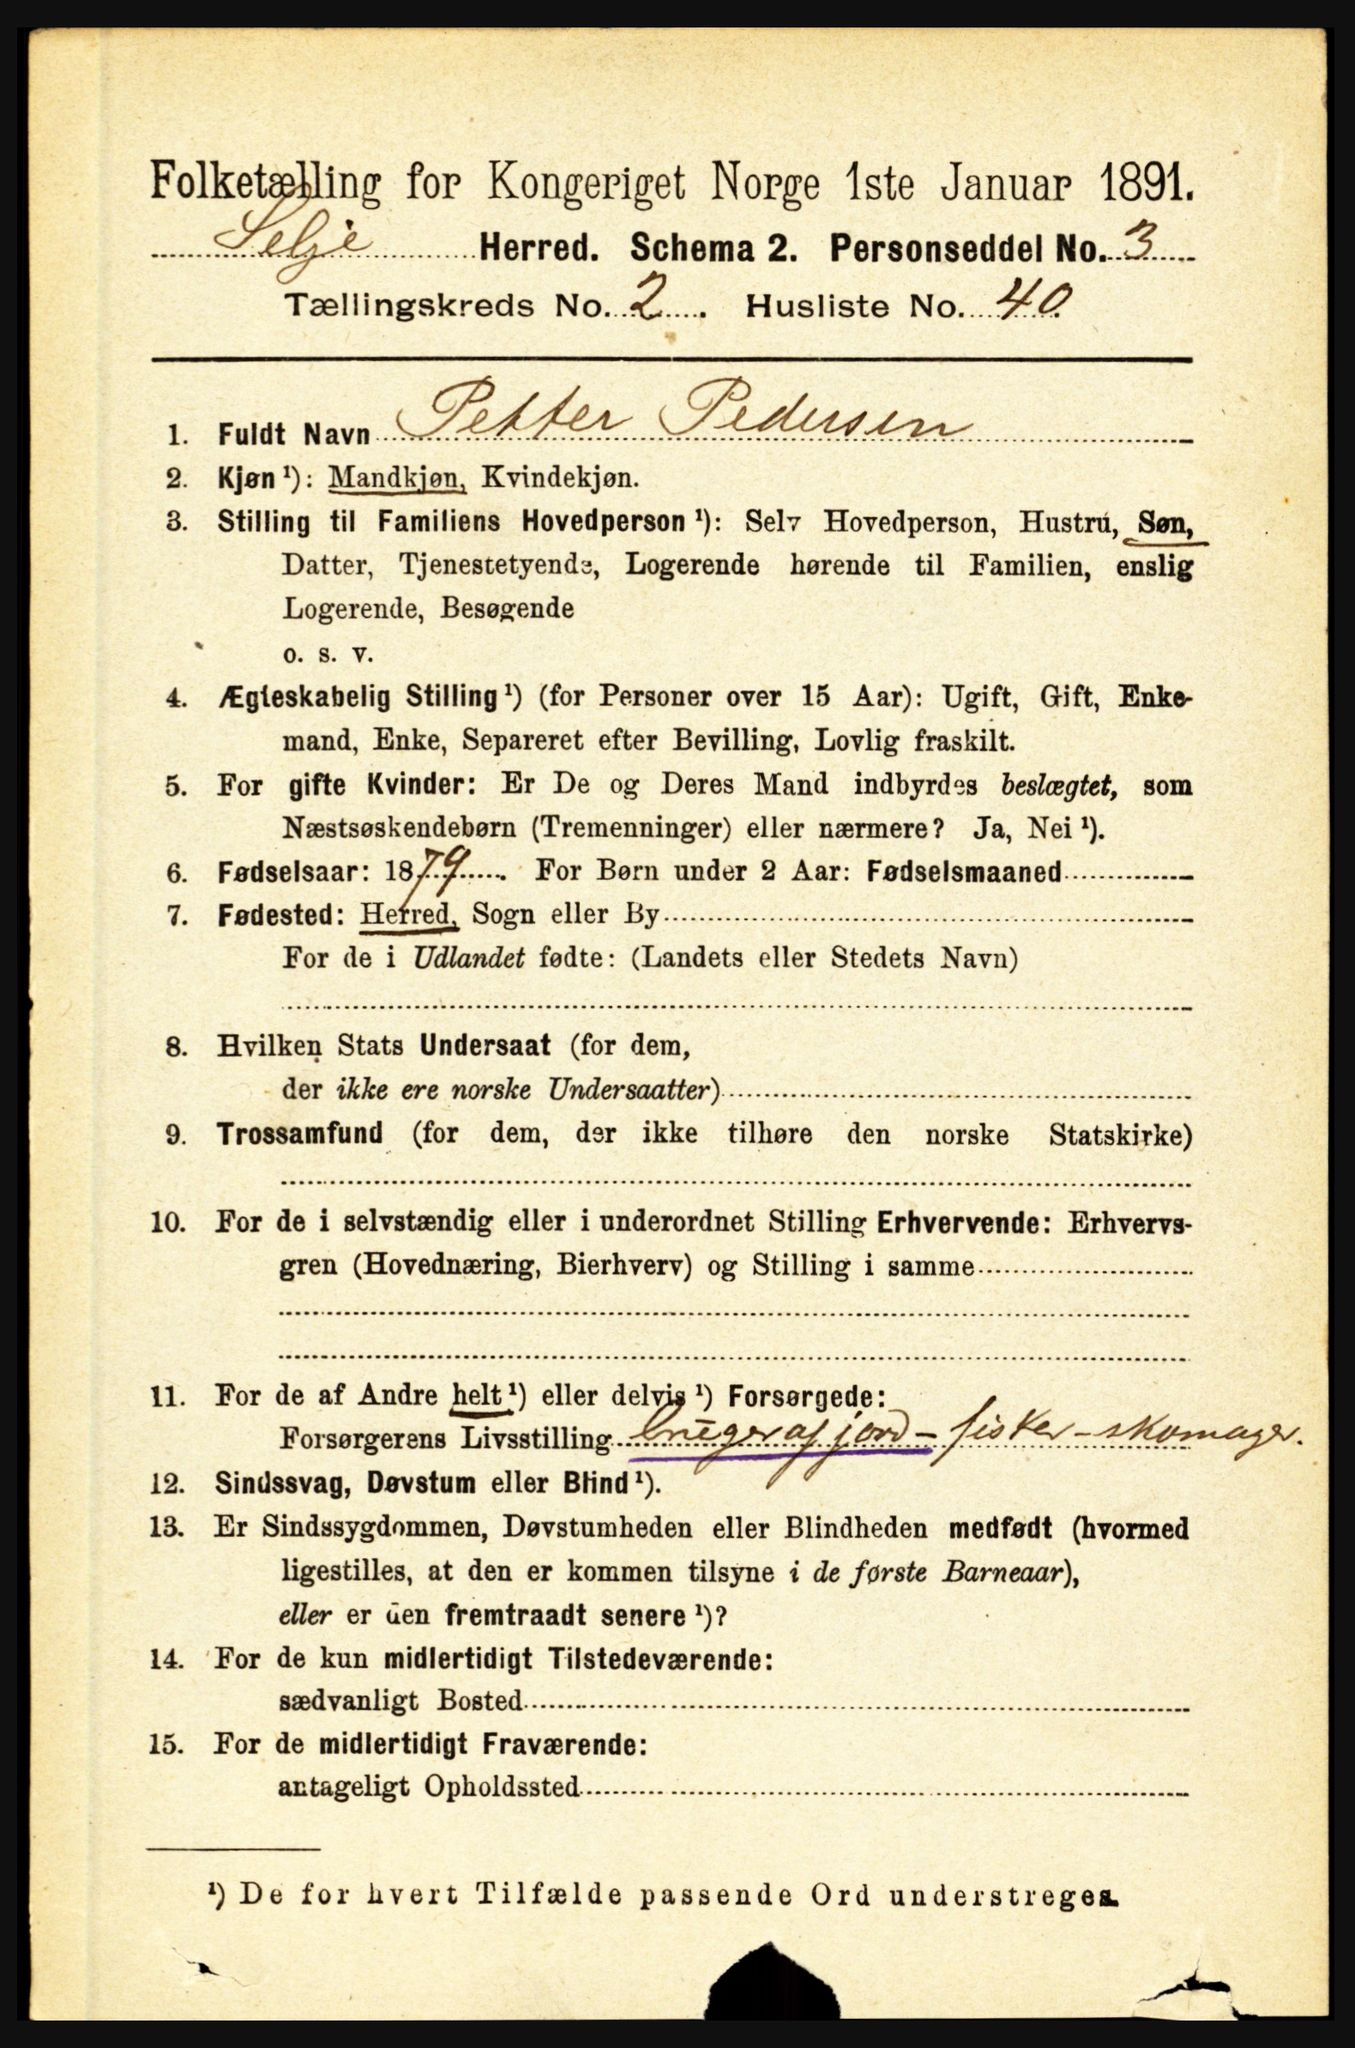 Folketælling for Kongeriget Norge 1ste Januar 1891.
Selje Herred. Schema 2. Personseddel No. 3
Tællingskreds No. 2. Husliste No. 40
1. Fuldt Navn Petter Pedersen
2. Kjøn ¹): Mandkjøn, Kvindekjøn.
3. Stilling til Familiens Hovedperson ¹): Selv Hovedperson, Hustru, Søn,
Datter, Tjenestetyende, Logerende hørende til Familien, enslig
Logerende, Besøgende
o. s. v.
4. Ægteskabelig Stilling ¹) (for Personer over 15 Aar): Ugift, Gift, Enke-
mand, Enke, Separeret efter Bevilling, Lovlig fraskilt.
5. For gifte Kvinder: Er De og Deres Mand indbyrdes beslægtet, som
Næstsøskendebørn (Tremenninger) eller nærmere? Ja, Nei ¹).
6. Fødselsaar: 1879. For Børn under 2 Aar: Fødselsmaaned
7. Fødested: Herred, Sogn eller By
For de i Udlandet fødte: (Landets eller Stedets Navn)
8. Hvilken Stats Undersaat (for dem,
der ikke ere norske Undersaatter)
9. Trossamfund (for dem, der ikke tilhøre den norske Statskirke)
10. For de i selvstændig eller i underordnet Stilling Erhvervende: Erhvervs-
gren (Hovednæring, Bierhverv) og Stilling i samme
11. For de af Andre helt ¹) eller delvis ¹) Forsørgede:
Forsørgerens Livsstilling bruger af jord - fisker - skomager.
12. Sindssvag, Døvstum eller Blind ¹).
13. Er Sindssygdommen, Døvstumheden eller Blindheden medfødt (hvormed
ligestilles, at den er kommen tilsyne i de første Barneaar),
eller er den fremtraadt senere ¹)?
14. For de kun midlertidigt Tilstedeværende:
sædvanligt Bosted
15. For de midlertidigt Fraværende:
antageligt Opholdssted
¹) De for hvert Tilfælde passende Ord understreges.